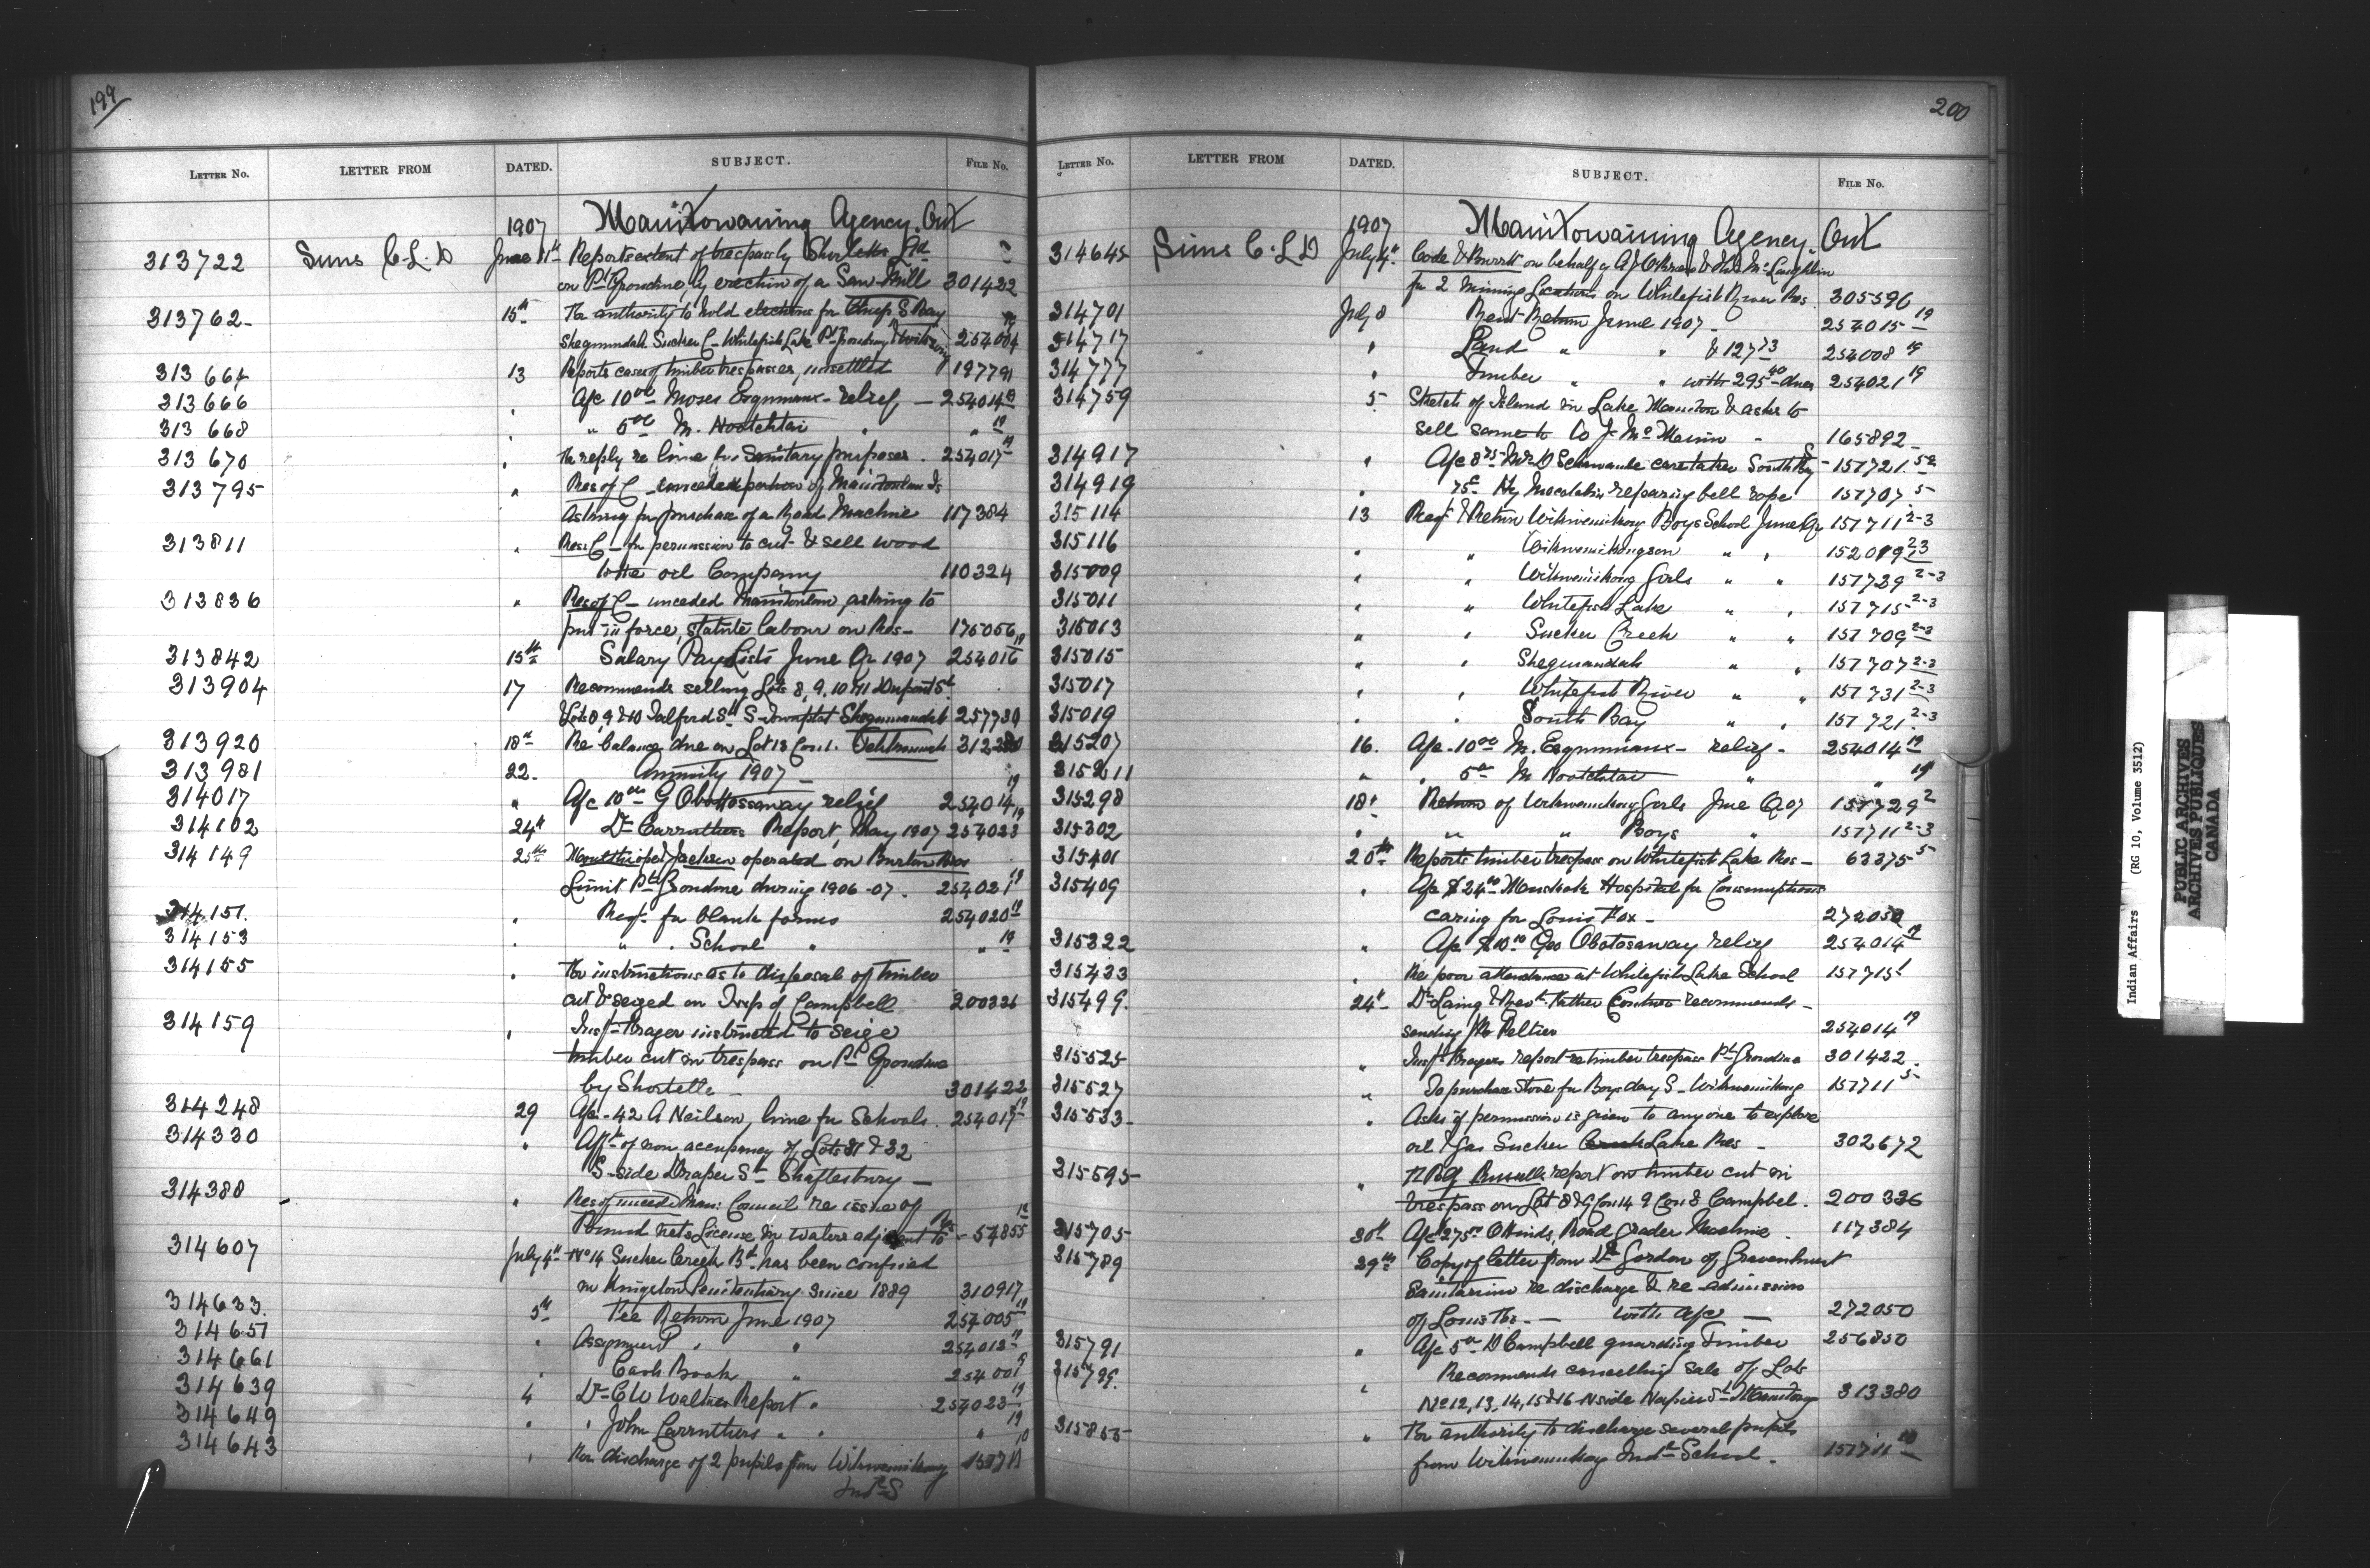 199
LETTER NO. LETTER FROM DATED. SUBJECT. FILE NO.
1907 Manitowaning Agency. Ont
313722 Sims C. L. D June 11th Reports extent of trespass by Shortetts Ltd
on Pt Grondine, by erection of a Saw Mill 301422
313762 15th For authority to hold elections for Chiefs S Bay
Sheguiandah Sucker C - Whitefish Lake Pt Grondine 254004
313664 13 Reports cases of timber trespasses, unsettled 197791
313666 " A/c 10 00 Moses Esquimaux - relief, - 254014 19
313668 " " 5 00 M. Nootchtai " " 19
313670 " In reply re lime for Sanitary purposes. 254017 19
313795 " Res of C - unceded portion of Manitoulin Is
Asking for purchase of a Road Machine 117384
313811 " Res. C - for permission to cut & sell wood
to the oil Company 110324
313836 " Res of C - unceded Manitoulin, asking to
put in force, statute labour on Res - 175056
313842 15th Salary Pay Lists June Qr 1907 254016 19
313904 17 Recommends selling Lots 8, 9, 10 & 11 Dupont St
& Lots 8, 9 & 10 Talford St S - Townplot Sheguiandah 257730
313920 18th Re balance due on Lot 13 Con 1. Tehkummah
313981 22. Annuity 1907 -
314017 " A/c 10 00 G Obottossaway relief 254014 19
314102 24th Dr Carruthers Report, May 1907 254023 19
314149 25th Jackson operated on
Limit Pt Grondine during 1906-07. 254021 19
314151. " Req. for blank forms 254020 19
314153 " " School " " 19
314155 " For instructions as to disposal of timber
cut & seized on Twp of Campbell 200326
314159 " Insp. Brager instructed to seize
timber cut in trespass on Pt Grondine
by Shortetts 301422
314248 29 A/c - 42 A Neilson, lime for Schools. 254017 19
314330 " Afft of non occupancy of Lots 31 & 32
S-side Draper St Shaftesbury -
314388 - " Res of unceded Man: Council re issue of
Pound nets License in waters adjacent to Res - 57855
314607 July 4th No 14 Sucker Creek Bd. has been confined
in Kingston Penitentiary since 1889 310917
314633. 5th Fee Return June 1907 254005 19
314651 " Assignment " " 254013 19
314661 " Cash Book " 254001 19
314639 4 Dr C W Walters Report " 254023 19
314649 " " John Carruthers " " " 19
314643 " For discharge of 2 pupils from Wikwemikong 157711 10
Indl S
200
LETTER NO. LETTER FROM DATED. SUBJECT. FILE NO.
1907 Manitowaning Agency. Ont
314645 Sims C. L. D July 4th Code & Burritt on behalf of A J O'Brien & McLaughlin
for 2 Mining Locations on Whitefish River Res. 305596
314701 July 8 Rent Return June 1907 - 254015 19
314717 " Land " " & 127 73 254008 19
314777 " Timber " " with 295 40 dues 254021 19
314759 5 Sketch of Island in Lake Manitou & asks to
sell same to - 165892
314917 " A/c 8 75 Mr D Schwande caretaker South Bay S - 157721 5-2
314919 " 75c Hy repairing bell rope 157707 5
315114 13 Req. & Return Wikwemikong Boys School June Qr 157711 2-3
315116 " " Wikwemikongson " " 152019 2-3
315009 " " Wikwemikong Girls " " 157729 2-3
315011 " " Whitefish Lake " " 157715 2-3
315013 " " Sucker Creek " " 157709 2-3
315015 " " Sheguiandah " " 157707 2-3
315017 " " Whitefish River " " 157731 2-3
315019 " " South Bay " " 157721 2-3
315207 16. A/c - 10 00 M. Esquimaux - relief - 254014 19
315211 " " 5 00 M Nootchtai " " 19
315298 18 " Return of Wikwemikong Girls June Q 07 157729 2
315302 " " " Boys " 157711 2-3
315401 20th Reports timber trespass on Whitefish Lake Res - 63375 5
315409 " A/c $24 00 Muskoka Hospital for Consumptives
caring for Louis Fox - 272050
315322 " A/c $10 00 Geo Obotosaway relief 254014 19
315433 " Re poor attendance at Whitefish Lake School 157715 1
315499. 24th Dr Laing & Revd. Father Couture recommends -
sending Peltier 254014 19
315525 " Insp. Bragers report re timber trespass Pt Grondine 301422.
315527 " To purchase stove for Boys day S - Wikwemikong 157711 5
315533 - " Asks if permission is given to anyone to explore
oil & gas Sucker Creek Lake Res - 302672
315595 " Russells report on timber cut in
trespass on Lot 8 & 9 Con 14 9 Con 8 Campbel. 200326
315705 30th A/c 275 00 O Hinds, Road Grader Machine. 117384
315789 29th Copy of letter from Dr Gordon of Gravenhurst
Sanitarium re discharge & re-admission
of Louis Fox. - with a/c - 272050
315791 " A/c 5 00 D Campbell guarding Timber 256850
315799. " Recommends cancelling sale of Lots
No 12, 13, 14, 15 & 16 N side Napier St 313380
315855 " For authority to discharge several pupils
from Wikwemikong Indl School. 157711 10
Indian Affairs (RG 10, Volume 3512)
PUBLIC ARCHIVES
ARCHIVES PUBLIQUES
CANADA